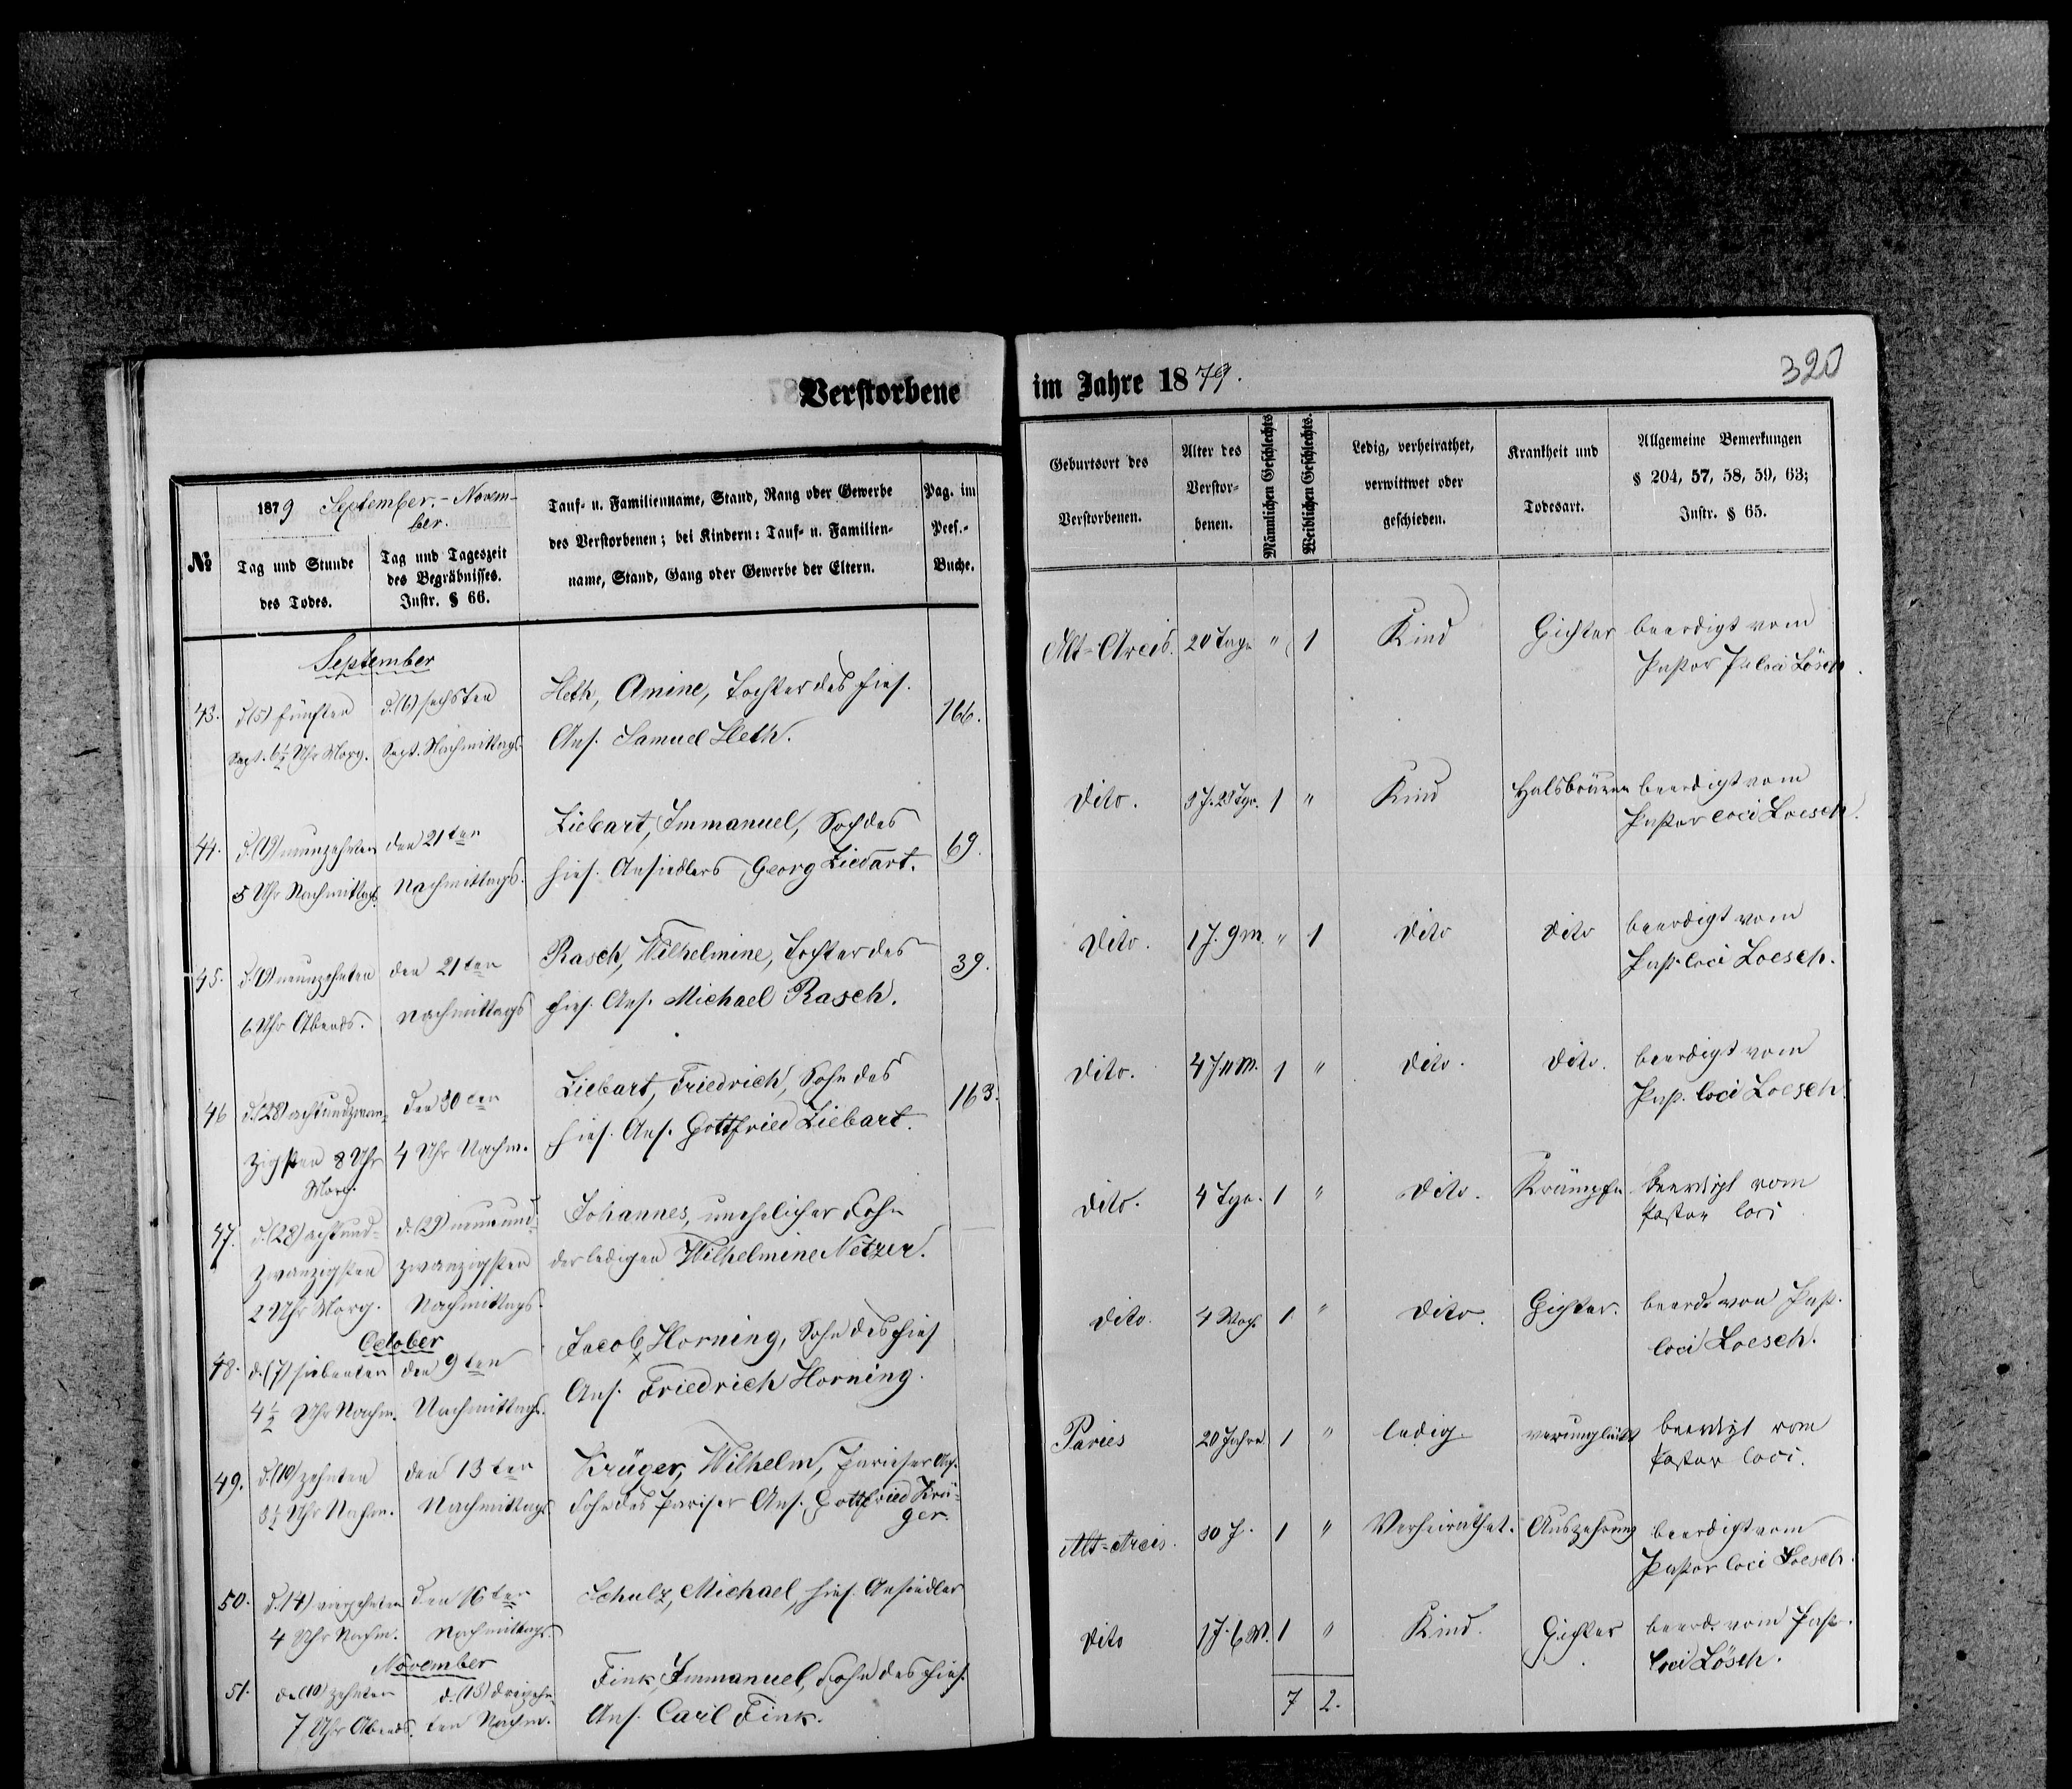 Verstorbene
im Jahre 1879.
320
№
1879 September.-Novem-
ber.
Tag und Stunde
des Todes.
Tag und Tageszeit
des Begräbnisses.
Instr. § 66.
Tauf- u. Familienname, Stand, Rang oder Gewerbe
des Verstorbenen; bei Kindern: Tauf- u. Familien-
name, Stand, Gang oder Gewerbe der Eltern.
Pag. im
Pers.-
Buche.
Geburtsort des
Verstorbenen.
Alter des
Verstor-
benen.
Männlichen Geschlechts
Weiblichen Geschlechts.
Ledig, verheirathet,
verwittwet oder
geschieden.
Krankheit und
Todesart.
Allgemeine Bemerkungen
§ 204, 57, 58, 59, 63;
Instr. § 65.
September
43.
d (5) fünften
Sept. 6½ Uhr Morg.
d. (6) sechsten
Sept. Nachmittags
Heth, Amine, Tochter des hies.
Ans. Samuel Heth.
166.
Alt-Arcis. 20 Tage " 1 Kind Gichter beerdigt vom
Pastor loci Lösch.
44.
d. (19) neunzehnten
5 Uhr Nachmittags
den 21ten
Nachmittags.
Liebart, Immanuel, Soh des
hies. Ansiedlers Georg Liebart.
69.
Dito. 3 J. 23 Tge. 1 " Kind Halsbräune beerdigt vom
Pastor loci Loesch.
45.
d. (19) neunzehnten
6 Uhr Abends.
den 21ten
Nachmittags
Rasch, Wilhelmine, Tochter des
hies. Ans. Michael Rasch.
39.
Dito. 1 J. 9 M. " 1 Dito Dito beerdigt vom
Past. loci Loesch.
46
d. (28) achtundzwan-
zigsten 8 Uhr
Morg.
den 30ten
4 Uhr Nachm.
Liebart, Friedrich, Sohn des
hies. Ans. Gottfried Liebart.
163.
Dito. 4 J 11 M. 1 " Dito. Dito. beerdigt vom
Pas. loci Loesch.
47.
d. (28) achtund-
zwanzigsten
2 Uhr Morg.
d. (29) neunund-
zwanzigsten
Nachmittags.
Johannes, unehelicher Sohn
der ledigen Wilhelmine Netzer.
Dito. 4 Tge. 1 " Dito. Krämpfe beerdigt vom
Pastor loci
October
48.
d. (7) siebenten
4½ Uhr Nachm.
den 9ten
Nachmittags.
Jacob Horning, Sohn des hies
Ans. Friedrich Horning.
Dito. 4 Woch 1 " Dito. Gichter. beerd. von Past.
loci Loesch.
49.
d. (10) zehnten
3½ Uhr Nachm.
den 13ten
Nachmittags
Krüger, Wilhelm, Pariser Ans.
Sohn des Pariser Ans. Gottfried Krü-
ger.
Paries 20 Jahre 1 " ledig. verunglückt beerdigt vom
Pastor loci.
50.
d. (14) vierzehnten
4 Uhr Nachm.
den 16ten
Nachmittags.
Schulz, Michael, hies. Ansiedler
Alt-Arcis. 30 J. 1 " Verheirathet. Auszehrung beerdigt vom
Pastor loci Loesch.
November
51.
den (10) zehnten
7 Uhr Abends.
d. (13) dreizehn-
ten Nachm.
Fink, Immanuel, Sohn des hies.
Ans. Carl Fink.
Dito 1 J. 6 M. 1 " Kind. Gichter beerd. vom Past.
loci Lösch.
7 2.